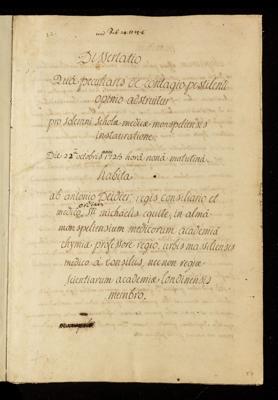 Dissertatio
Quâ peculiaris de contagio pestilenti
opinio adstruitur
pro solemni scholæ medicæ monspeliensis
instauratione
Die 22ª octobris 1725 horâ nonâ matutinâ
habita
ab antonio Deidier, regis consiliario et
medico, ordinis Sti michaelis equite, in almâ
monspeliensium medicorum academiâ
chymiæ professore regio, urbis massiliensis
medico a consiliis, necnon regiæ
scientiarum academiæ londinensis
membro.